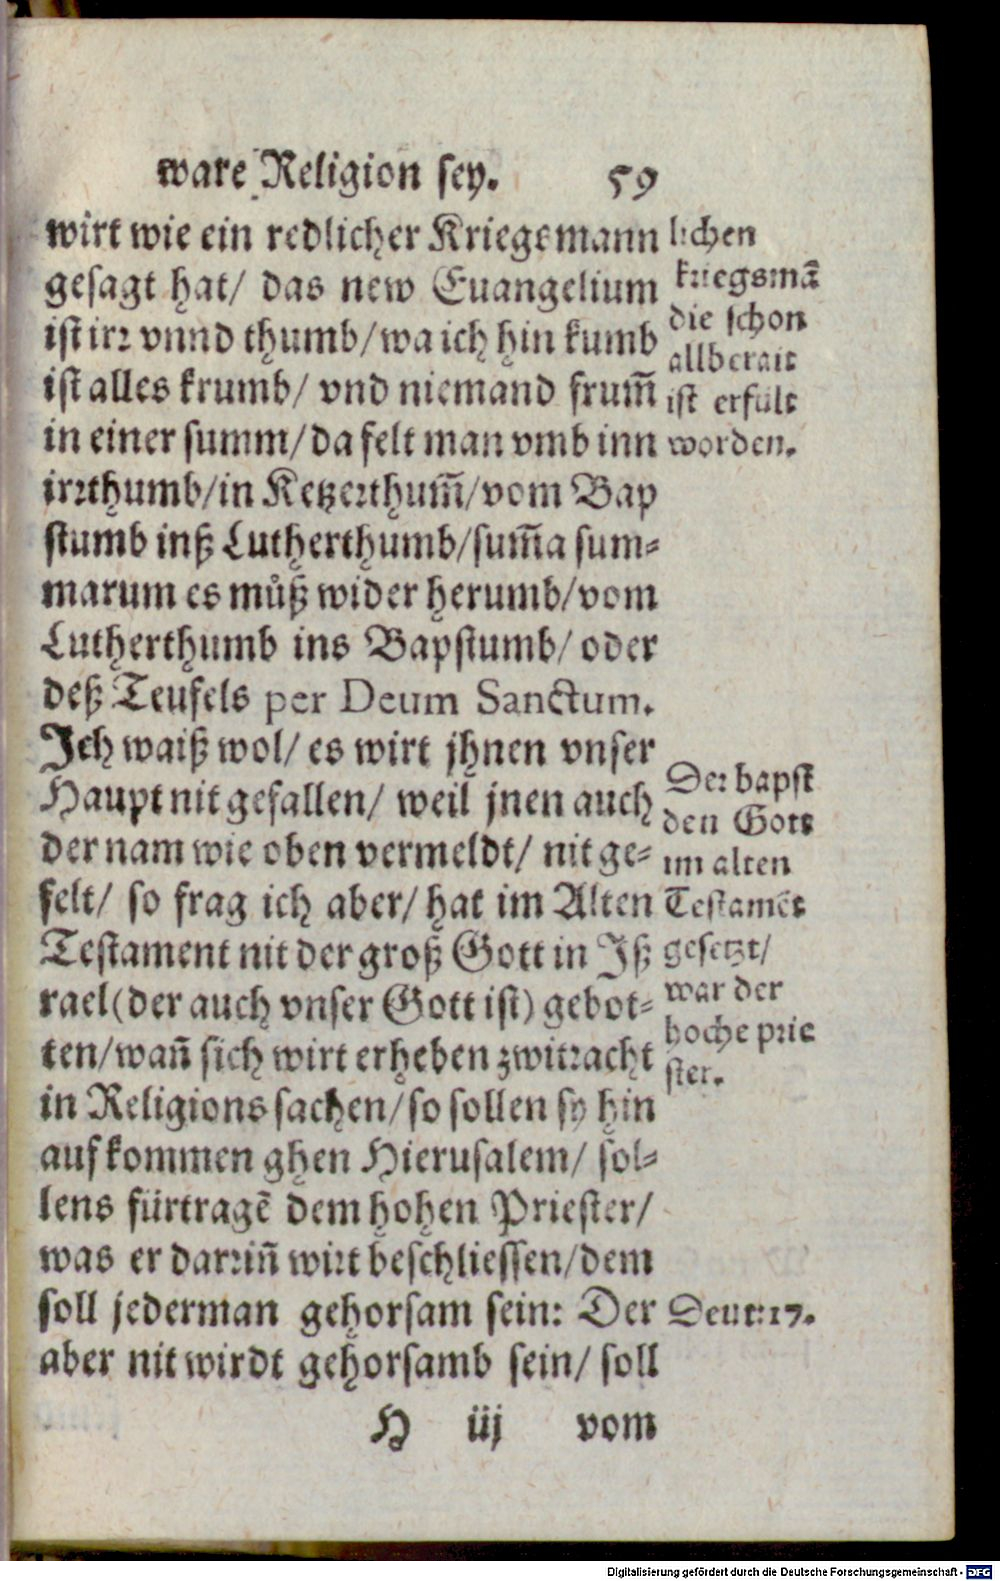 ware Religion sey. 59
wirt wie ein redlicher Kriegsmann
gesagt hat/ das new Euangelium
ist irr vnnd thumb/wa ich hin kumb
ist alles krumb/ vnd niemand frum̃
in einer summ/da felt man vmb inn
irrthumb/in Ketzerthum̃/vom Bap
stumb inß Lutherthumb/sum̃a sum-
marum es můß wider herumb/vom
Lutherthumb ins Bapstumb/ oder
deß Teufels per Deum Sanctum.
Ich waiß wol/ es wirt jhnen vnser
Haupt nit gefallen/ weil jnen auch
der nam wie oben vermeldt/ nit ge-
felt/ so frag ich aber/ hat im Alten
Testament nit der groß Gott in Iß
rael(der auch vnser Gott ist) gebot-
ten/wañ sich wirt erheben zwitracht
in Religions sachen/so sollen sy hin
auf kommen ghen Hierusalem/ sol-
lens fürtragẽ dem hohen Priester/
was er darriñ wirt beschliessen/dem
soll jederman gehorsam sein: Der
aber nit wirdt gehorsamb sein/ soll
H iij vom
lichen
kriegsmã
die schon
allberait
ist erfült
worden.
Der bapst
den Gott
im alten
Testamẽt
gesetzt/
war der
hoche prie
ster.
Deut:17.
Digitalisierung gefördert durch die Deutsche Forschungsgemeinschaft - DFG